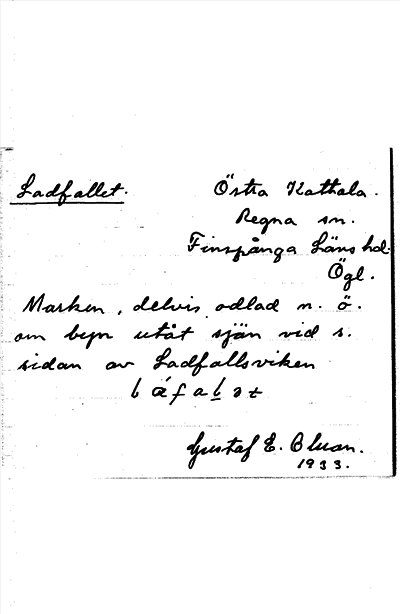 Ladfallet. Östra Kattala.
Regna sn.
Finspånga Läns hd.
Ögl.
Marken, delvis odlad n. ö.
om byn utåt sjön vid s.
sidan av Ladfallsviken
Gustaf E.
1933.